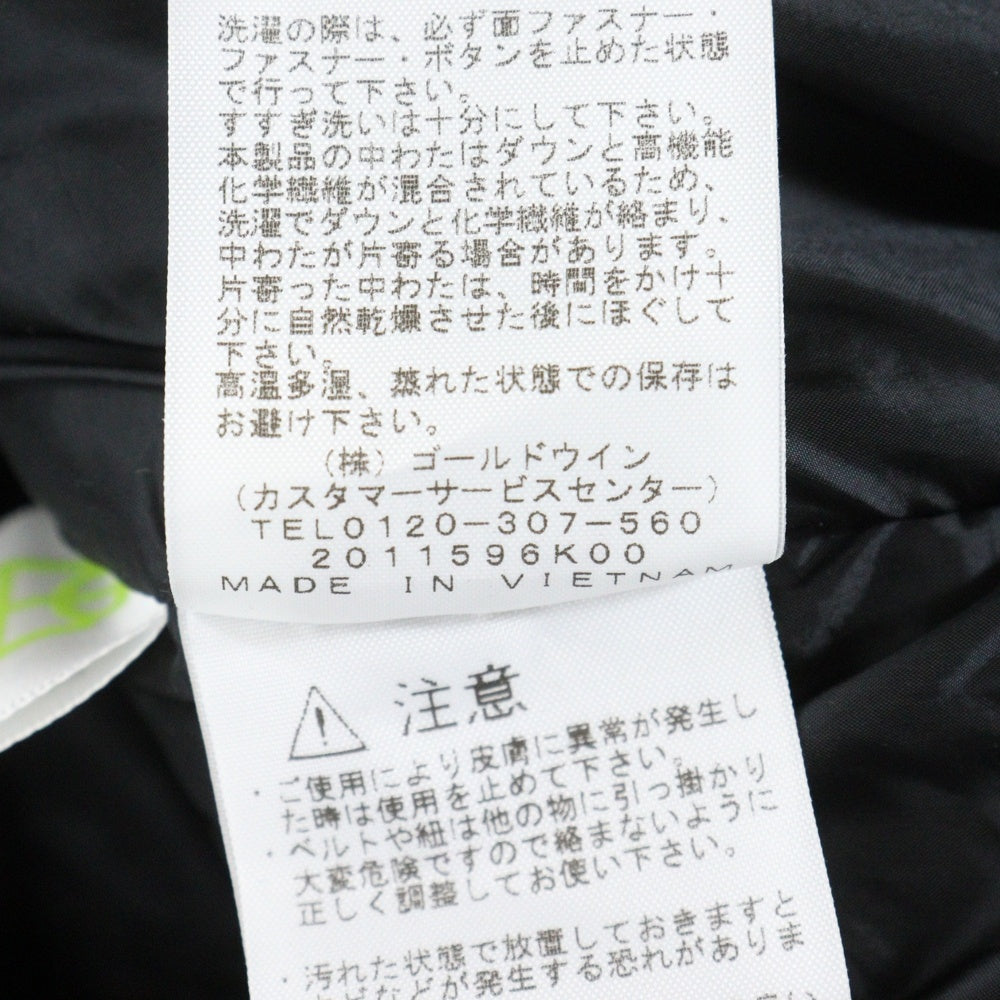 洗濯の際は、必ず面ファスナー・
ファスナー・ボタンを止めた状態
で行って下さい。
すすぎ洗いは十分にして下さい。
本製品の中わたはダウンと高機能
化学繊維が混合されているため、
洗濯でダウンと化学繊維が絡まり、
中わたが片寄る場合があります。
片寄った中わたは、時間をかけ十
分に自然乾燥させた後にほぐして
下さい。
高温多湿、蒸れた状態での保存は
お避け下さい。
(株)ゴールドウイン
(カスタマーサービスセンター)
TEL0120-307-560
2011596K00
MADE IN VIETNAM
注意
・ご使用により皮膚に異常が発生し
た時は使用を止めて下さい。
・ベルトや紐は他の物に引っ掛かり
大変危険ですので絡まないように
正しく調整してお使い下さい。
・汚れた状態で放置しておきますと
などが発生する恐れがありま